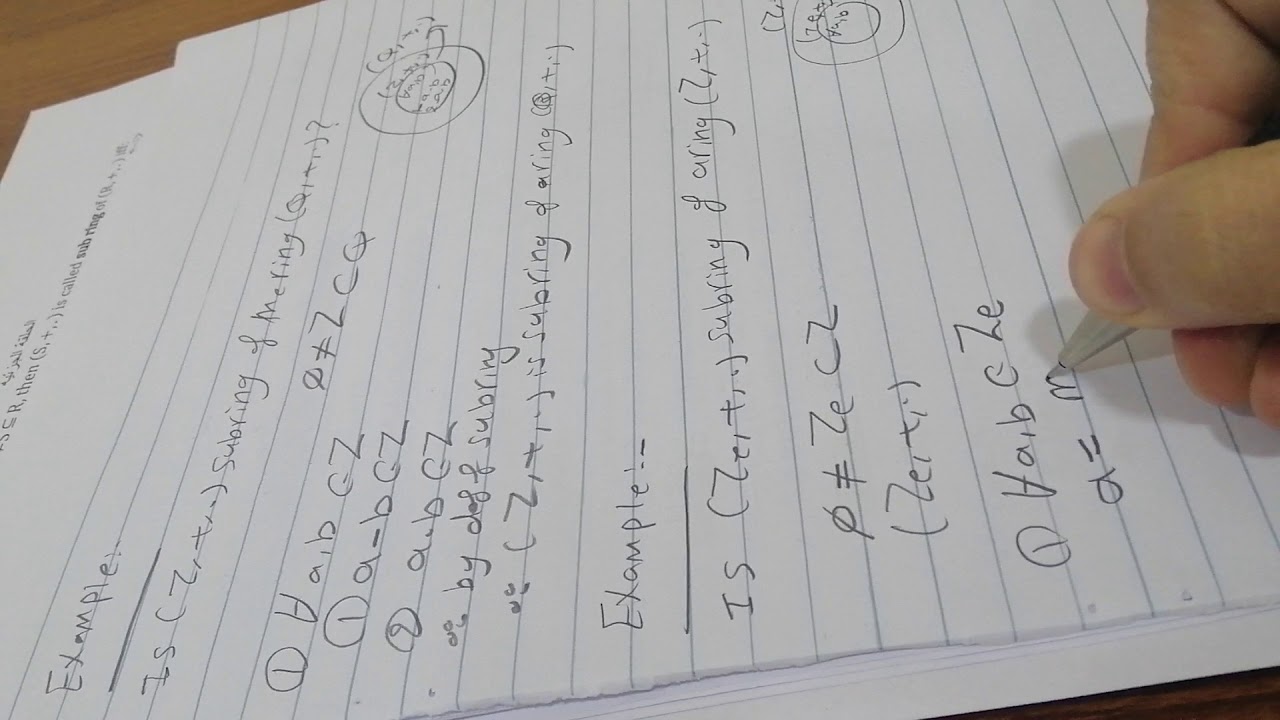 ⊆ R, then (S, +, .) is called sub ring of (R, +, .) iff
Example:-
Is (Z, +, .) subring of the ring (Q, +, .)?
(Q, +, .)
Ø ≠ Z ⊂ Q
① ∀ a, b ⊂ Z
① a - b ⊂ Z
② a . b ⊂ Z
∴ by def of subring
∴ (Z, +, .) is subring of a ring (Q, +, .)
Example:-
Is (Ze, +, .) subring of a ring (Z, +, .)
Ø ≠ Ze ⊂ Z
(Ze, +, .)
① ∀ a, b ⊂ Ze
a =